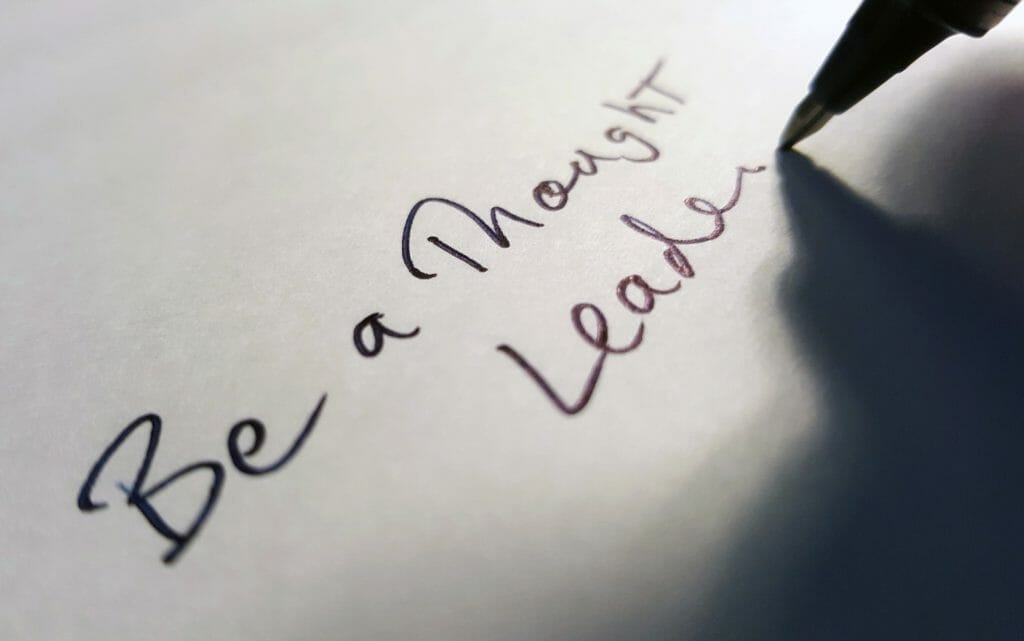 Be a Thought
Leader